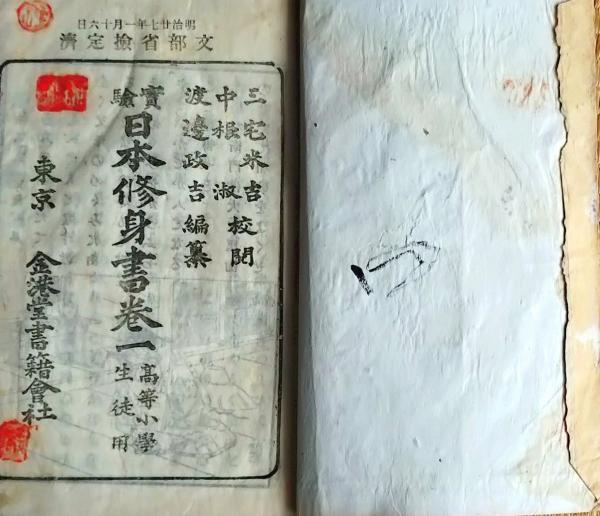 明治廿七年一月十六日
文部省撿定濟
三宅米吉
中根淑校閱
渡邊政吉編纂
實驗日本修身書卷一
高等小學
生徒用
東京
金港堂書籍會社